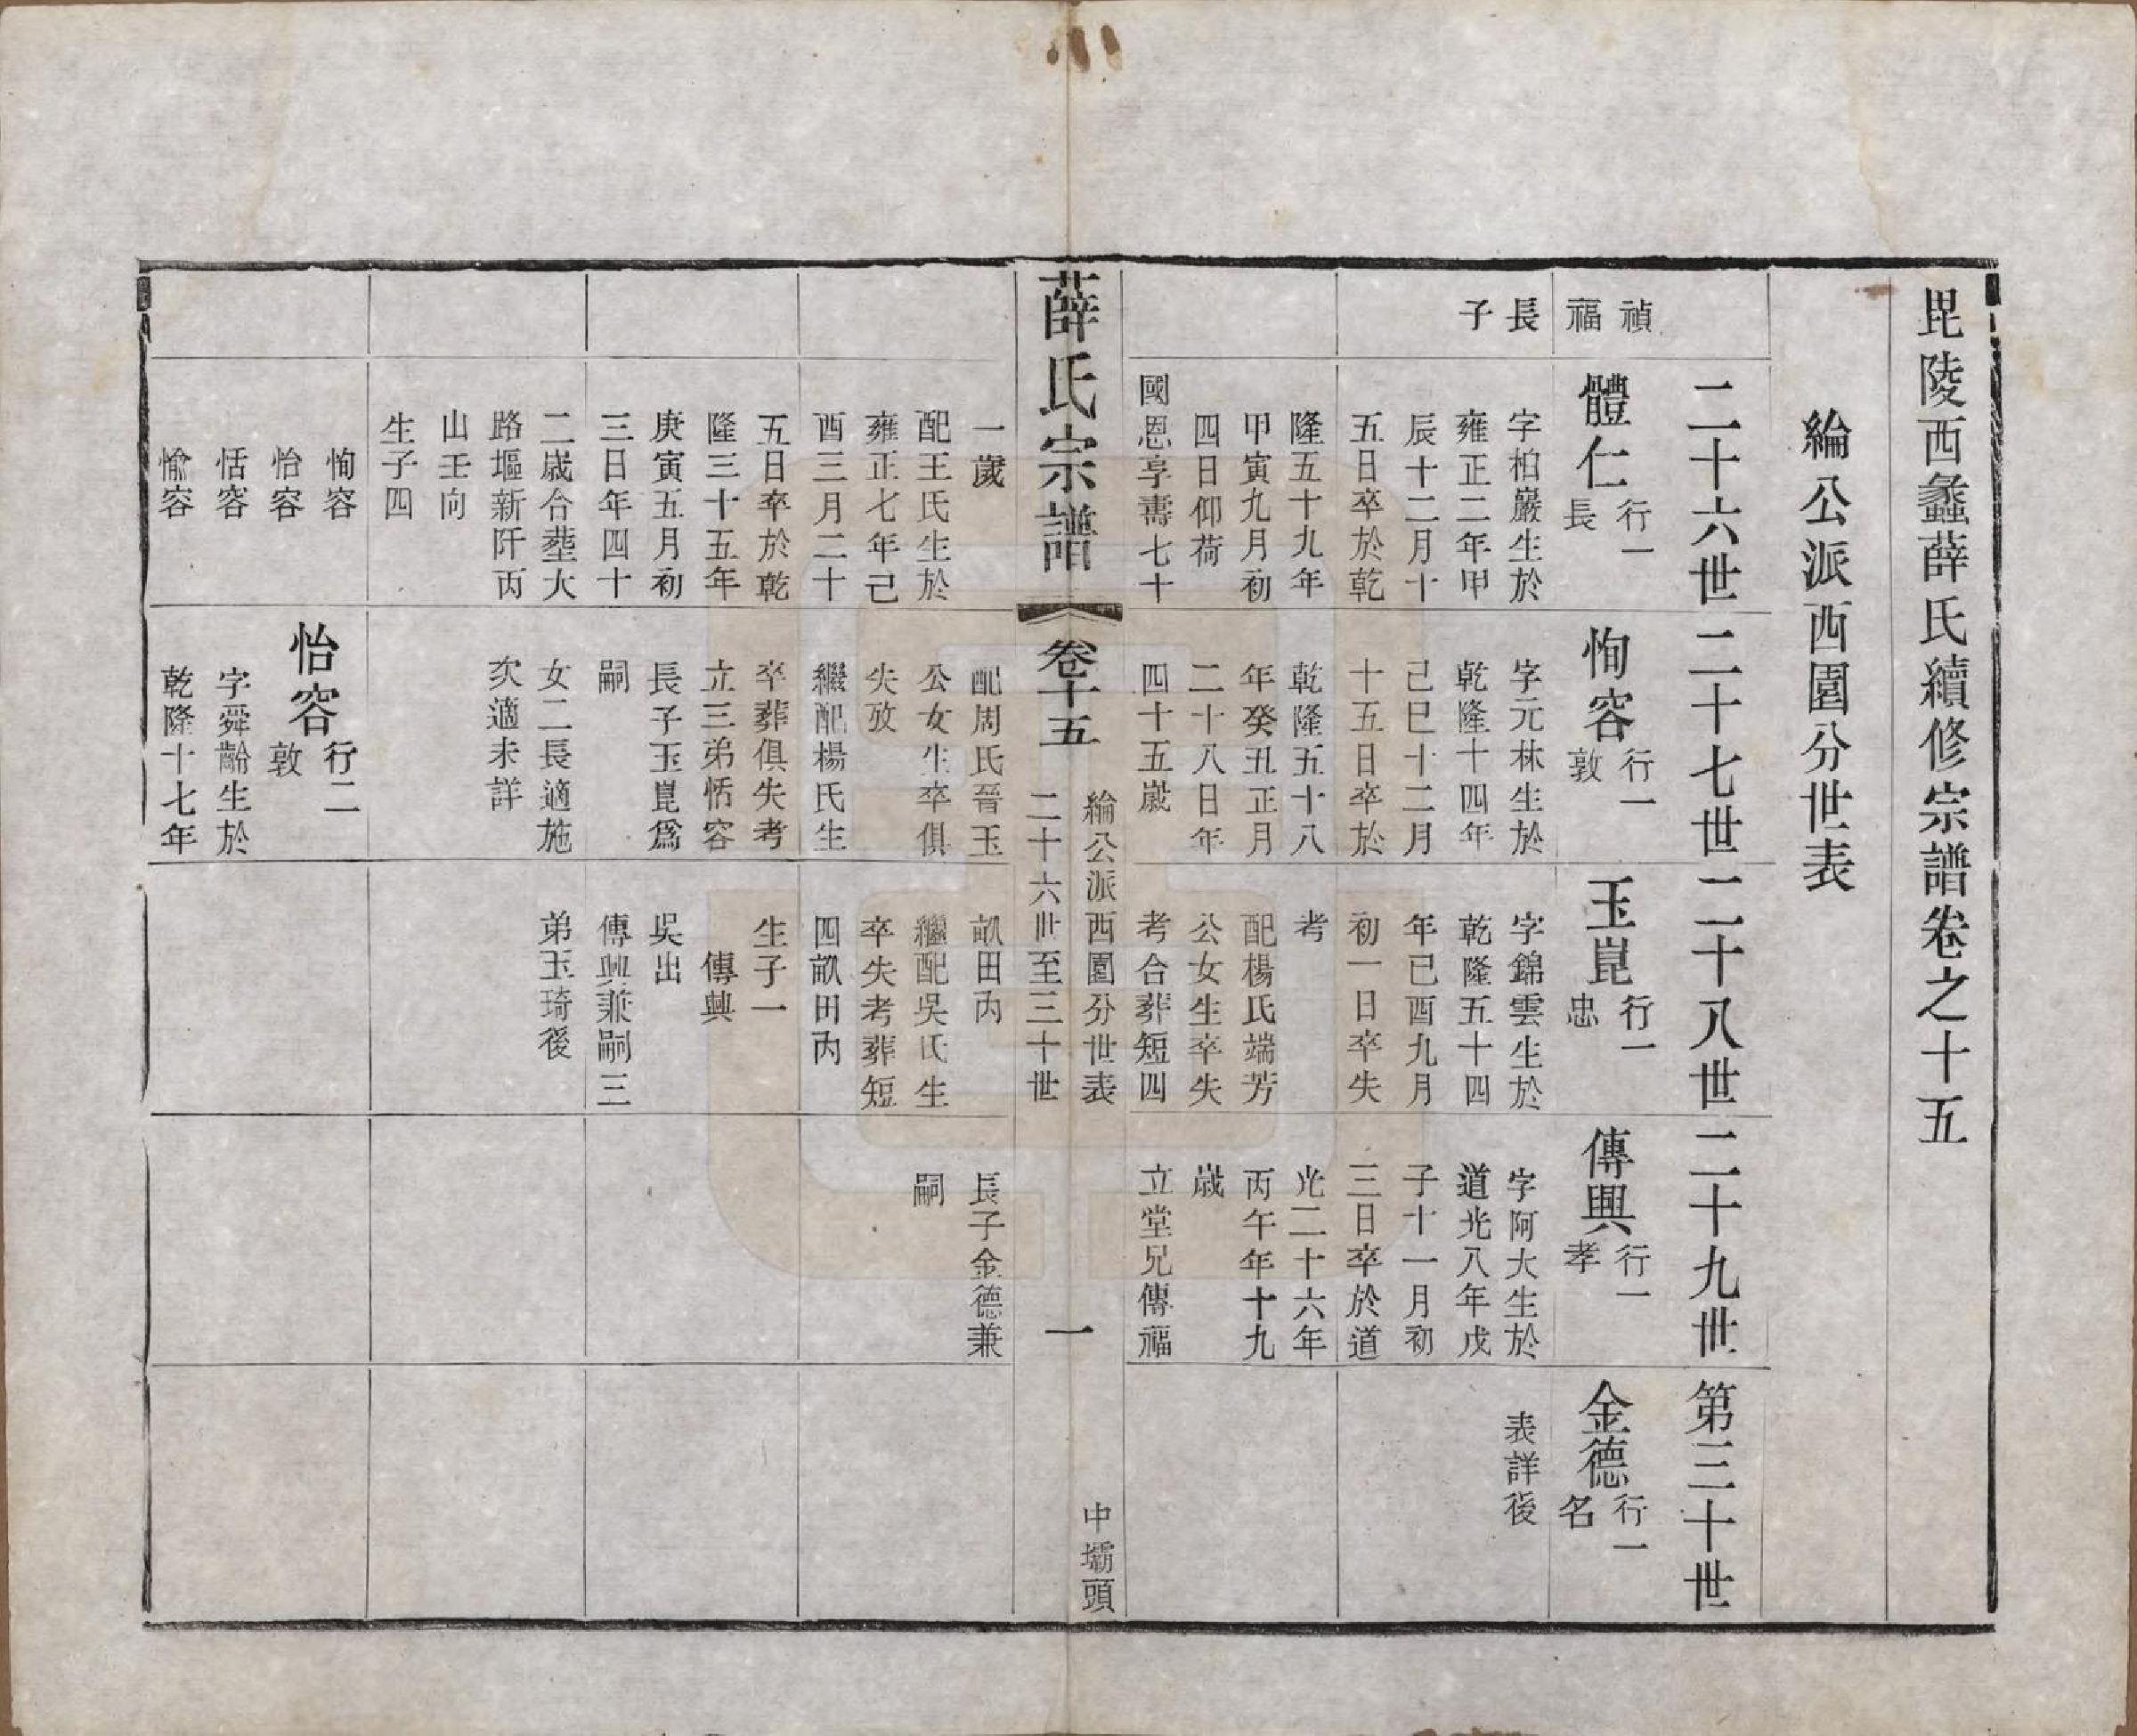 毘陵西蠡薛氏續修宗譜卷之十五
綸公派西園分世表
二十六世
二十七世
二十八世
二十九世
第三十世
禎
福
長
子
體仁
行一
長
字柏巖生於
雍正二年甲
辰十二月十
五日卒於乾
隆五十九年
甲寅九月初
四日仰荷
國恩享壽七十
恂容
行一
敦
字元林生於
乾隆十四年
己巳十二月
十五日卒於
乾隆五十八
年癸丑正月
二十八日年
四十五歲
玉崑
行一
忠
字錦雲生於
乾隆五十四
年己酉九月
初一日卒失
考
配楊氏端芳
公女生卒失
考合葬短四
傳興
行一
孝
字阿大生於
道光八年戊
子十一月初
三日卒於道
光二十六年
丙午年十九
歲
立堂兄傳福
金德
行一
名
表詳後
薛氏宗譜
卷十五
綸公派西園分世表
二十六世至三十世
一
中壩頭
一歲
配王氏生於
雍正七年己
酉三月二十
五日卒於乾
隆三十五年
庚寅五月初
三日年四十
二歲合塟大
路塸新阡丙
山壬向
生子四
恂容
怡容
恬容
愉容
配周氏晉玉
公女生卒俱
失攷
繼配楊氏生
卒葬俱失考
立三弟恬容
長子玉崑爲
嗣
女二長適施
次適未詳
怡容
行二
敦
字舜齡生於
乾隆十七年
畝田內
繼配吳氏生
卒失考葬短
四畝田內
生子一
傳興
吳出
傳興兼嗣三
弟玉琦後
長子金德兼
嗣